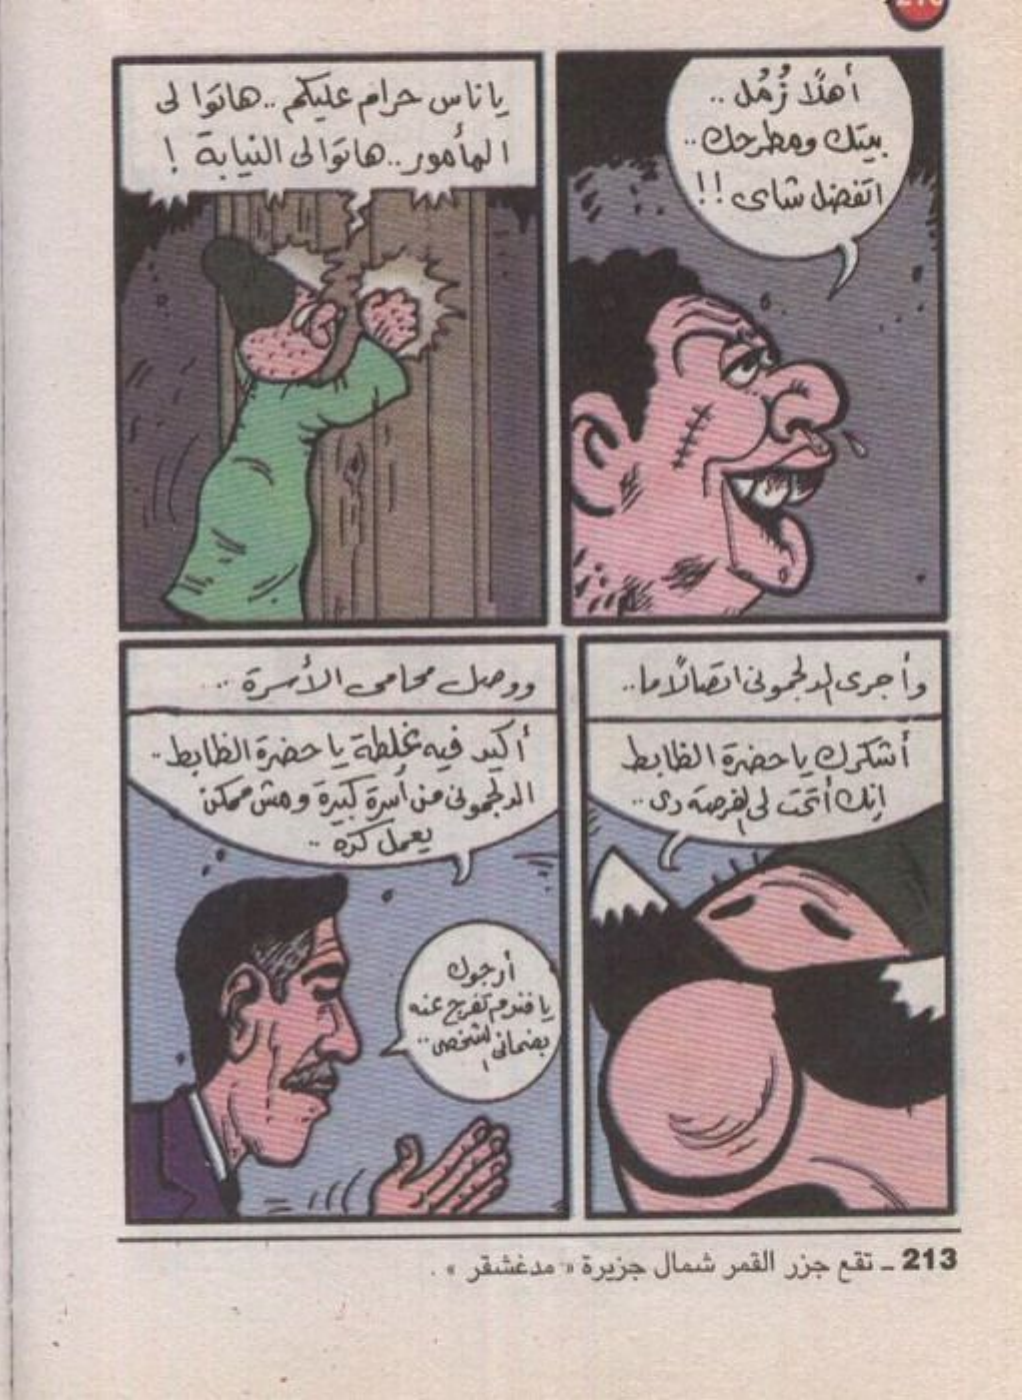 أهلًا زُمُل ..
بيتك ومطرحك ..
اتفضل شاى !!
يا ناس حرام عليكم .. هاتوا لى
المأمور .. هاتوا لى النيابة !
وأجرى الدلجمونى اتصالًا ما ..
أشكرك يا حضرة الظابط
إنك أتحت لى الفرصة دى ..
ووصل محامى الأسرة ..
أكيد فيه غلطة يا حضرة الظابط ..
الدلجمونى من أسرة كبيرة ومش ممكن
يعمل كده ..
أرجوك
يا فندم تفرج عنه
بضمانى الشخصى ..
213 ـ تقع جزر القمر شمال جزيرة « مدغشقر » .